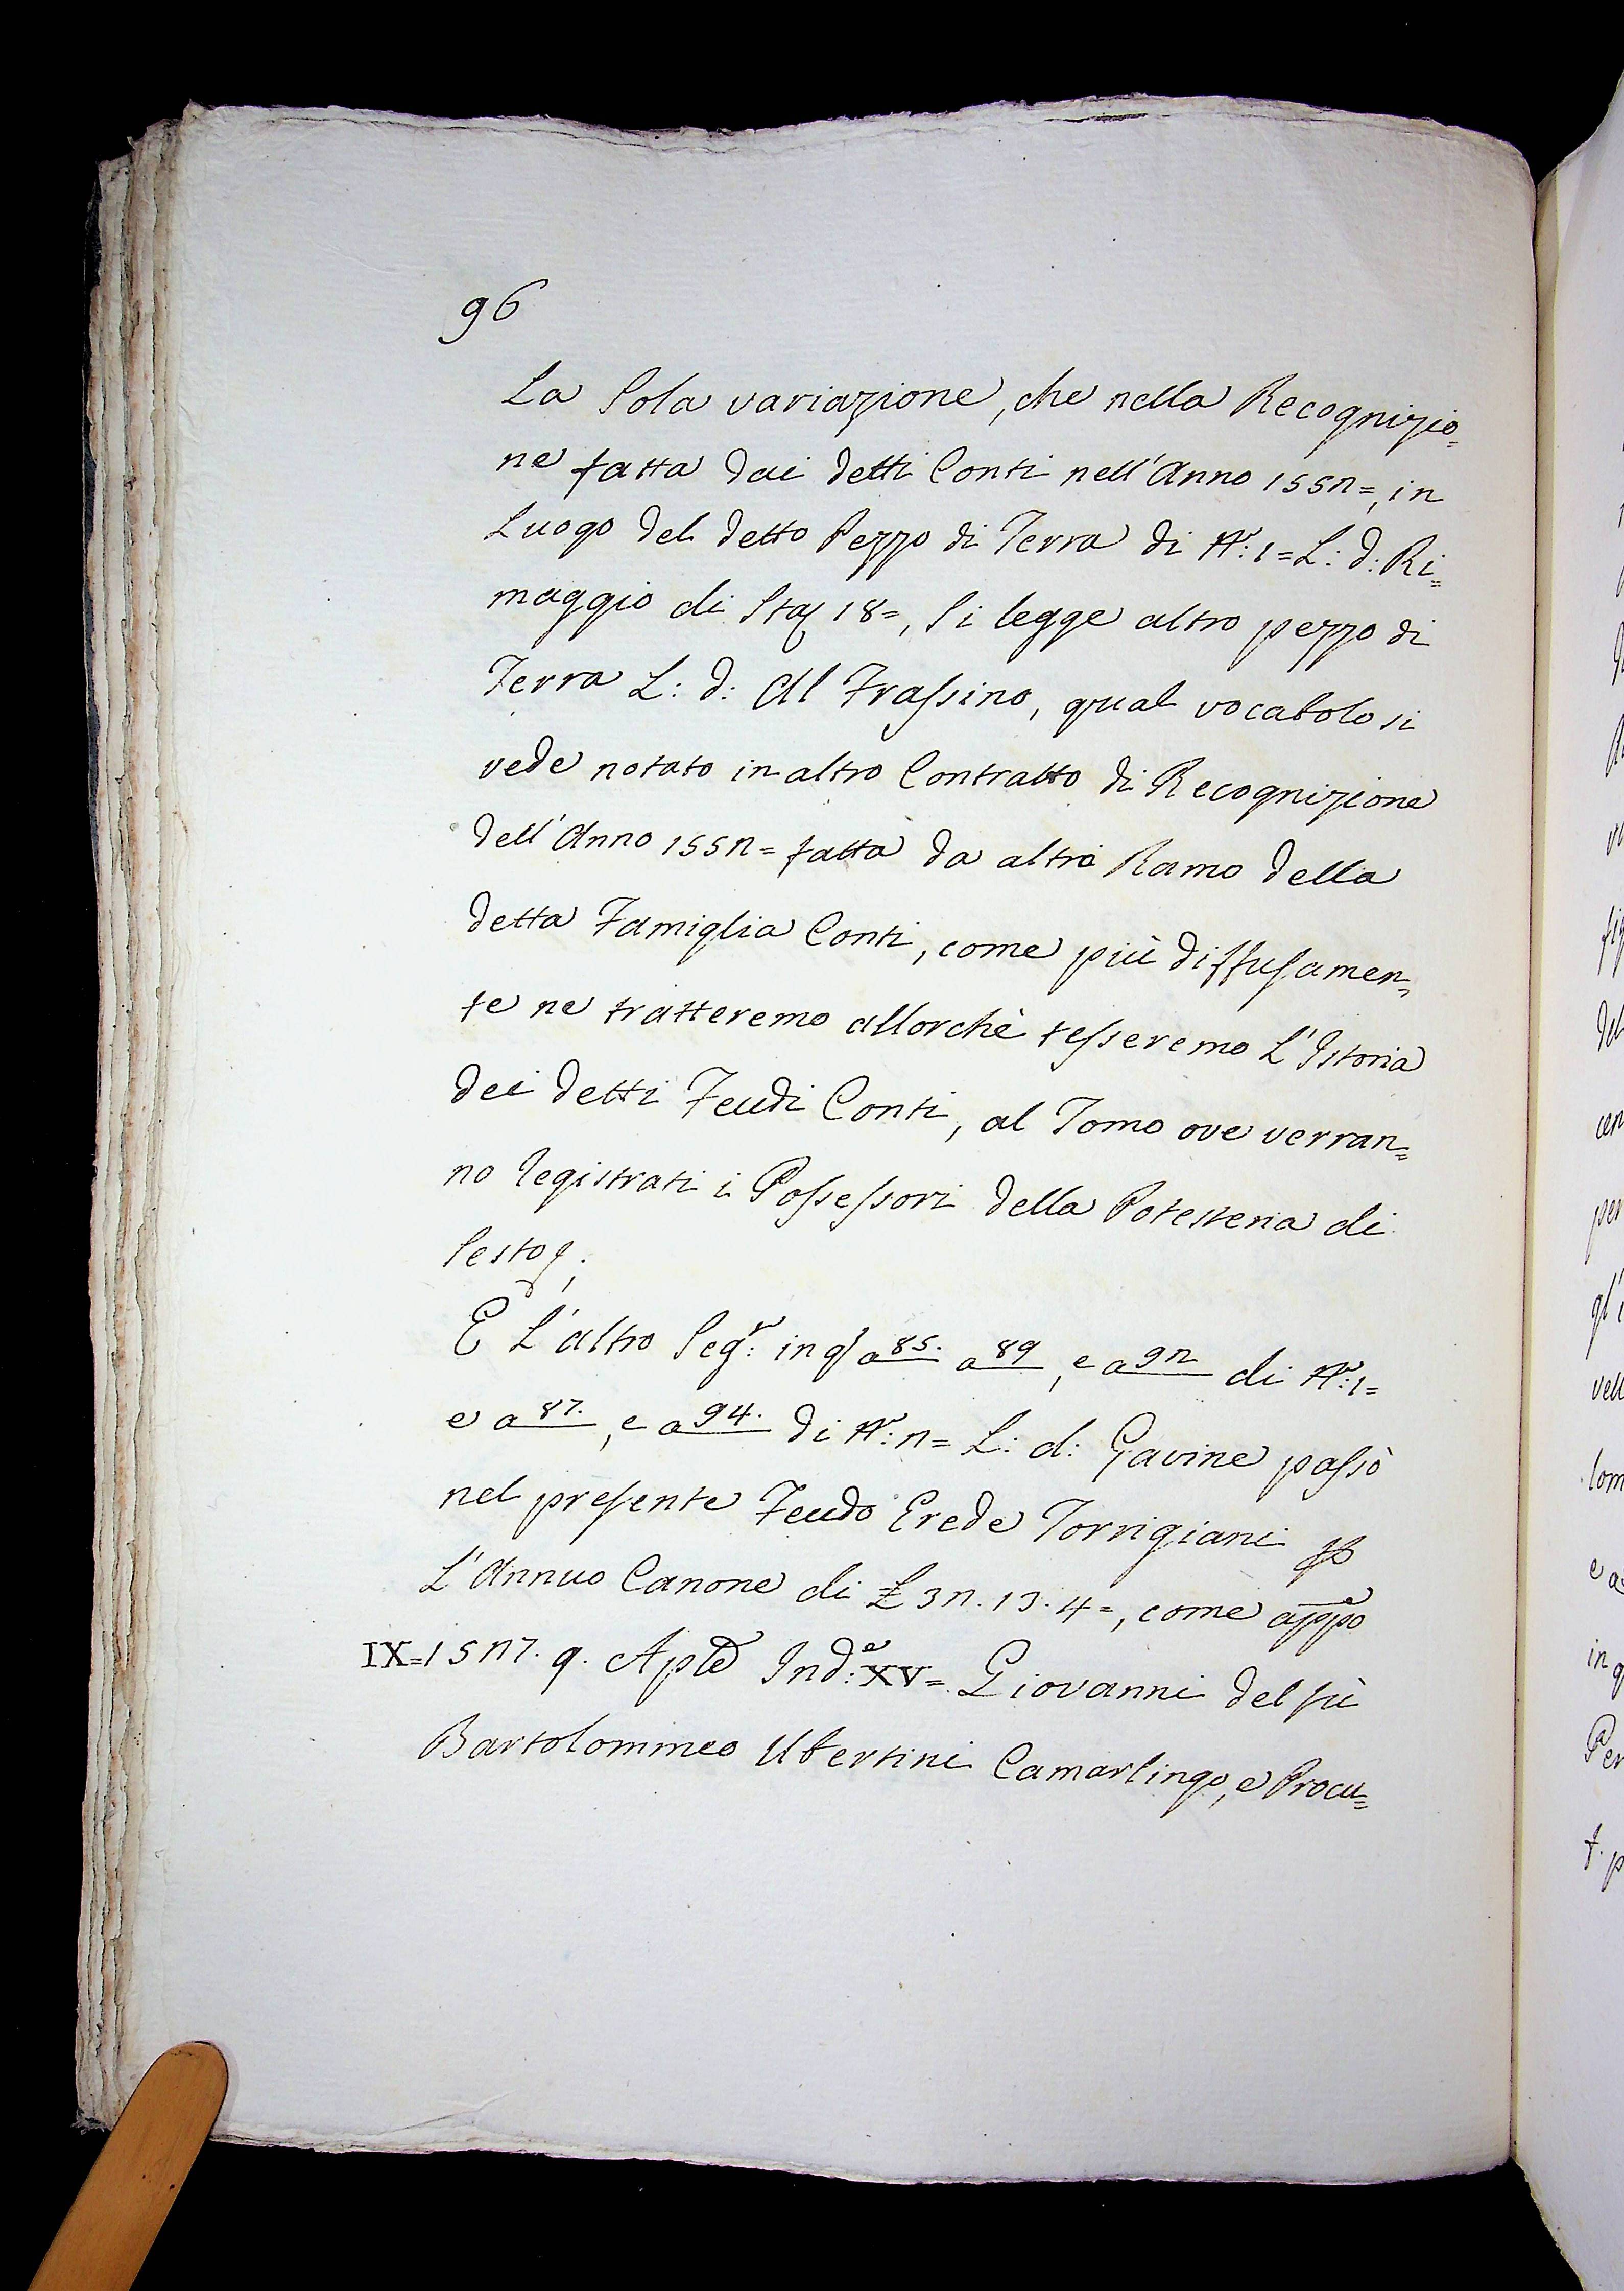 96
La Sola variazione, che nella Recognizio=
ne fatta dai detti Conti nell'Anno 1552=, in
Luogo del detto Pezzo di Terra di N.º: 1= L: d: Ri=
maggio di Staj 18=, Si legge altro pezzo di
Terra L: d: Al Frassino, qual vocabolo si
vede notato in altro Contratto di Recognizione
dell'Anno 1552= fatta da altro Ramo della
detta Famiglia Conti, come più diffusamen=
te ne tratteremo allorchè tesseremo L'Istoria
dei detti Feudi Conti, al Tomo ove verran=
no registrati i Possessori della Potesteria di
Sesto;
E L'altro Seg.r: in q.o a 85. a 89, e a 92 di N.º: 1=
e a 87., e a 94. di N.º: 2= L: d: Gavine passò
nel presente Feudo Erede Torrigiani p
L'Annuo Canone di £ 32. 13. 4=, come app.o
IX=1527. 9. Aple Ind.e: XV= Giovanni del fù
Bartolommeo Ubertini Camarlingo, e Procu=